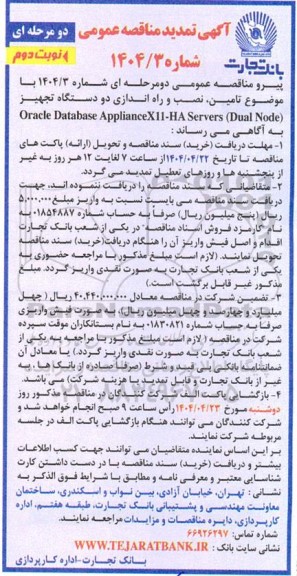 آگهی تمدید مناقصه عمومی
شماره ۱۴۰۴/۳
دو مرحله ای
نوبت دوم
بانک تجارت
پیرو مناقصه عمومی دومرحله ای شماره ۱۴۰۴/۳ با
موضوع تامین، نصب و راه اندازی دو دستگاه تجهیز
Oracle Database ApplianceX11-HA Servers (Dual Node)
به آگاهی می رساند :
۱- مهلت دریافت (خرید) سند مناقصه و تحویل (ارائه) پاکت های
مناقصه تا تاریخ ۱۴۰۴/۰۴/۲۲ از ساعت ۷ لغایت ۱۲ هر روز به غیر
از پنجشنبه ها و روزهای تعطیل تمدید می گردد.
۲- متقاضیانی که سند مناقصه را دریافت ننموده اند، جهت
دریافت سند مناقصه می بایست نسبت به واریز مبلغ ۵.۰۰۰.۰۰۰
ریال (پنج میلیون ریال) صرفاً به حساب شماره ۰۱۸۵۴۸۸۷ به نام
« کارمزد فروش اسناد مناقصه » در یکی از شعب بانک تجارت
اقدام و اصل فیش واریز آن را هنگام دریافت(خرید) سند مناقصه
تحویل نمایند. (لازم است مبلغ مذکور با مراجعه حضوری به
یکی از شعب بانک تجارت به صورت نقدی واریز گردد. مبلغ
مذکور غیر قابل برگشت است.)
۳- تضمین شرکت در مناقصه معادل ۴۰.۴۴۰.۰۰۰.۰۰۰ ریال (چهل
میلیارد و چهارصد و چهل میلیون ریال)، به صورت فیش واریزی
صرفا به حساب شماره ۰۱۸۳۰۸۲۱ به نام بستانکاران موقت سپرده
شرکت در مناقصه (لازم است مبلغ مذکور با مراجعه به یکی از
شعب بانک تجارت به صورت نقدی واریز گردد.) یا معادل آن
ضمانتنامه بانکی بی قید و شرط (صرفاً صادره از بانک ها، به
غیر از بانک تجارت و قابل تمدید با هزینه شرکت) می باشد.
۴- بازگشایی پاکت الف شرکت کنندگان در مناقصه مذکور روز
دوشنبه مورخ ۱۴۰۴/۰۴/۲۳ رأس ساعت ۹ صبح انجام خواهد شد و
شرکت کنندگان می توانند هنگام بازگشایی پاکت الف در جلسه
مربوطه شرکت نمایند.
بر این اساس نماینده متقاضیان می توانند جهت کسب اطلاعات
بیشتر و دریافت (خرید) سند مناقصه با در دست داشتن کارت
شناسایی معتبر و معرفی نامه و مطابق با شرایط فوق الذکر به
نشانی : تهران، خیابان آزادی، بین نواب و اسکندری، ساختمان
معاونت مهندسی و پشتیبانی بانک تجارت، طبقه هفتم، اداره
کارپردازی، دایره مناقصات و مزایدات مراجعه نمایند.
شماره تماس: ۶۶۹۲۶۳۹۷
نشانی سایت بانک : WWW.TEJARATBANK.IR
بانک تجارت-اداره کارپردازی